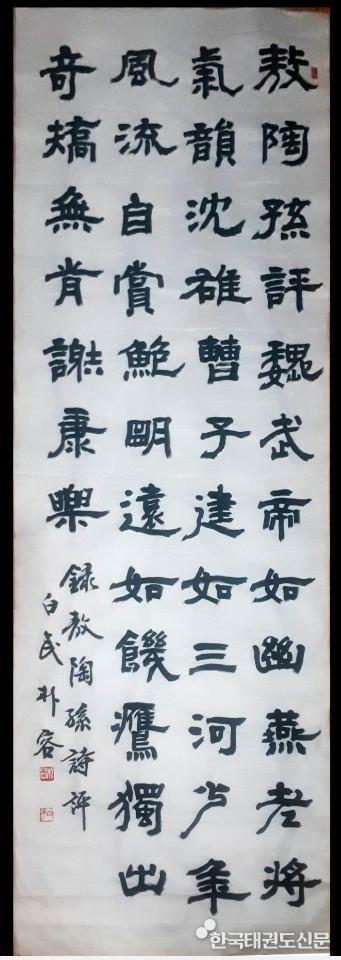 敖陶孫評魏武帝如幽燕老將
氣韻沈雄曹子建如三河少年
風流自賞鮑明遠如饑鷹獨出
奇矯無前謝康樂
錄敖陶孫詩評
白民朴容
한국태권도신문